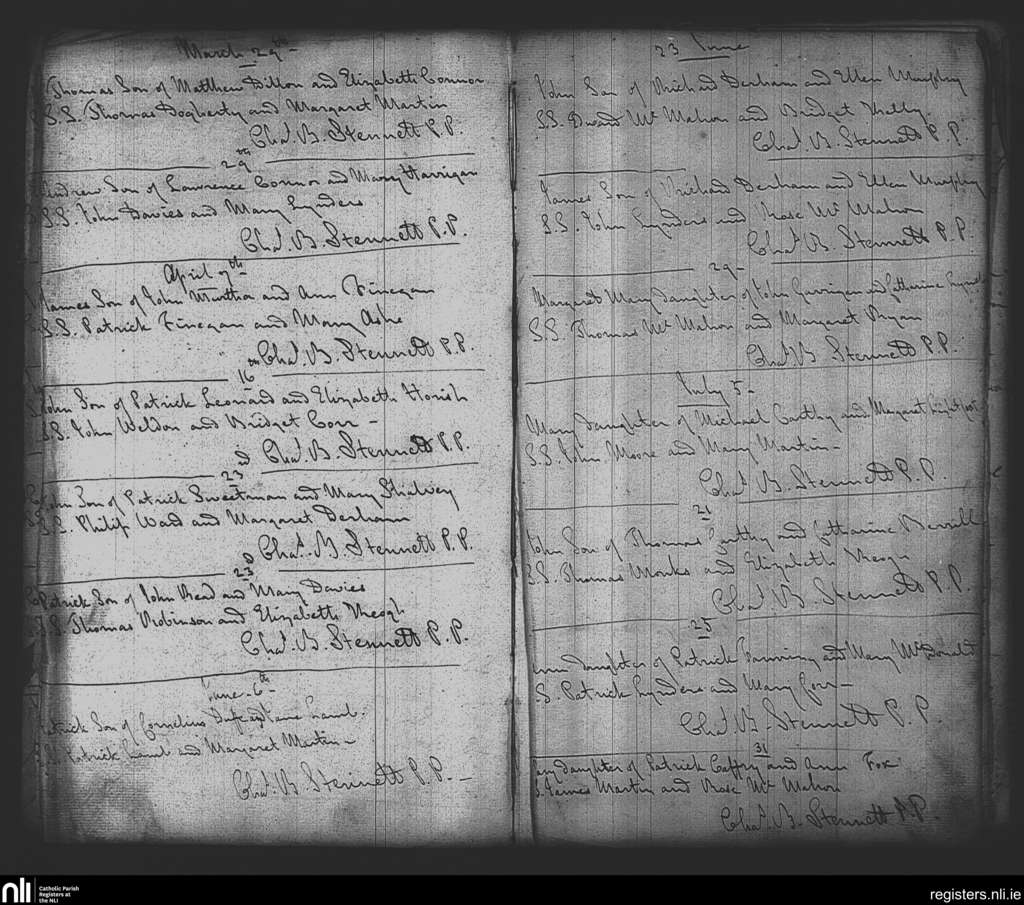 March 29th
Thomas Son of Matthew Dillon and Elizabeth Connor
S.S. Thomas Dogherty and Margaret Martin
Chas. B. Stennett P.P.
29th
Andrew Son of Lawrence Connor and Mary Harrigan
S.S. John Davies and Mary Lynders
Chas. B. Stennett P.P.
April 7th
James Son of John Murtha and Ann Finegan
S.S. Patrick Finegan and Mary Ashe
Chas. B. Stennett P.P.
16th
John Son of Patrick Leonard and Elizabeth Horish
S.S. John Weldon and Bridget Corr -
Chas. B. Stennett P.P.
23d
John Son of Patrick Sweetman and Mary Shalvey
S.S. Philip Ward and Margaret Derham
Chas. B. Stennett P.P.
23d
Patrick Son of John Read and Mary Davies
S.S. Thomas Robinson and Elizabeth Keogh
Chas. B. Stennett P.P.
June 6th
Patrick Son of Cornelius and Jane Lamb.
S.S. Patrick Lamb and Margaret Martin -
Chas. B. Stennett P.P. -
23 June
John Son of Richard Derham and Ellen Murphy
S.S. Edward McMahon and Bridget Kelly.
Chas. B. Stennett P.P.
James Son of Richard Derham and Ellen Murphy
S.S. John Lynders and Rose McMahon
Chas. B. Stennett P.P.
29-
Margaret Mary daughter of John Garrigan and Catharine
S.S. Thomas McMahon and Margaret Ryan
Chas. B. Stennett P.P.
July 5-
Mary daughter of Michael Carthy and Margaret Lightfoot
S.S. John Moore and Mary Martin -
Chas. B. Stennett P.P.
21
John Son of Thomas Carthy and Catharine
S.S. Thomas Monks and Elizabeth Keogh
Chas. B. Stennett P.P.
25
Ann daughter of Patrick Fanning and Mary McDonald
S.S. Patrick Lynders and Mary Corr -
Chas. B. Stennett P.P.
31
Mary daughter of Patrick Caffry and Ann Fox
S.S. James Martin and Rose McMahon
Chas. B. Stennett P.P.
nli
Catholic Parish
Registers at
the NLI
registers.nli.ie